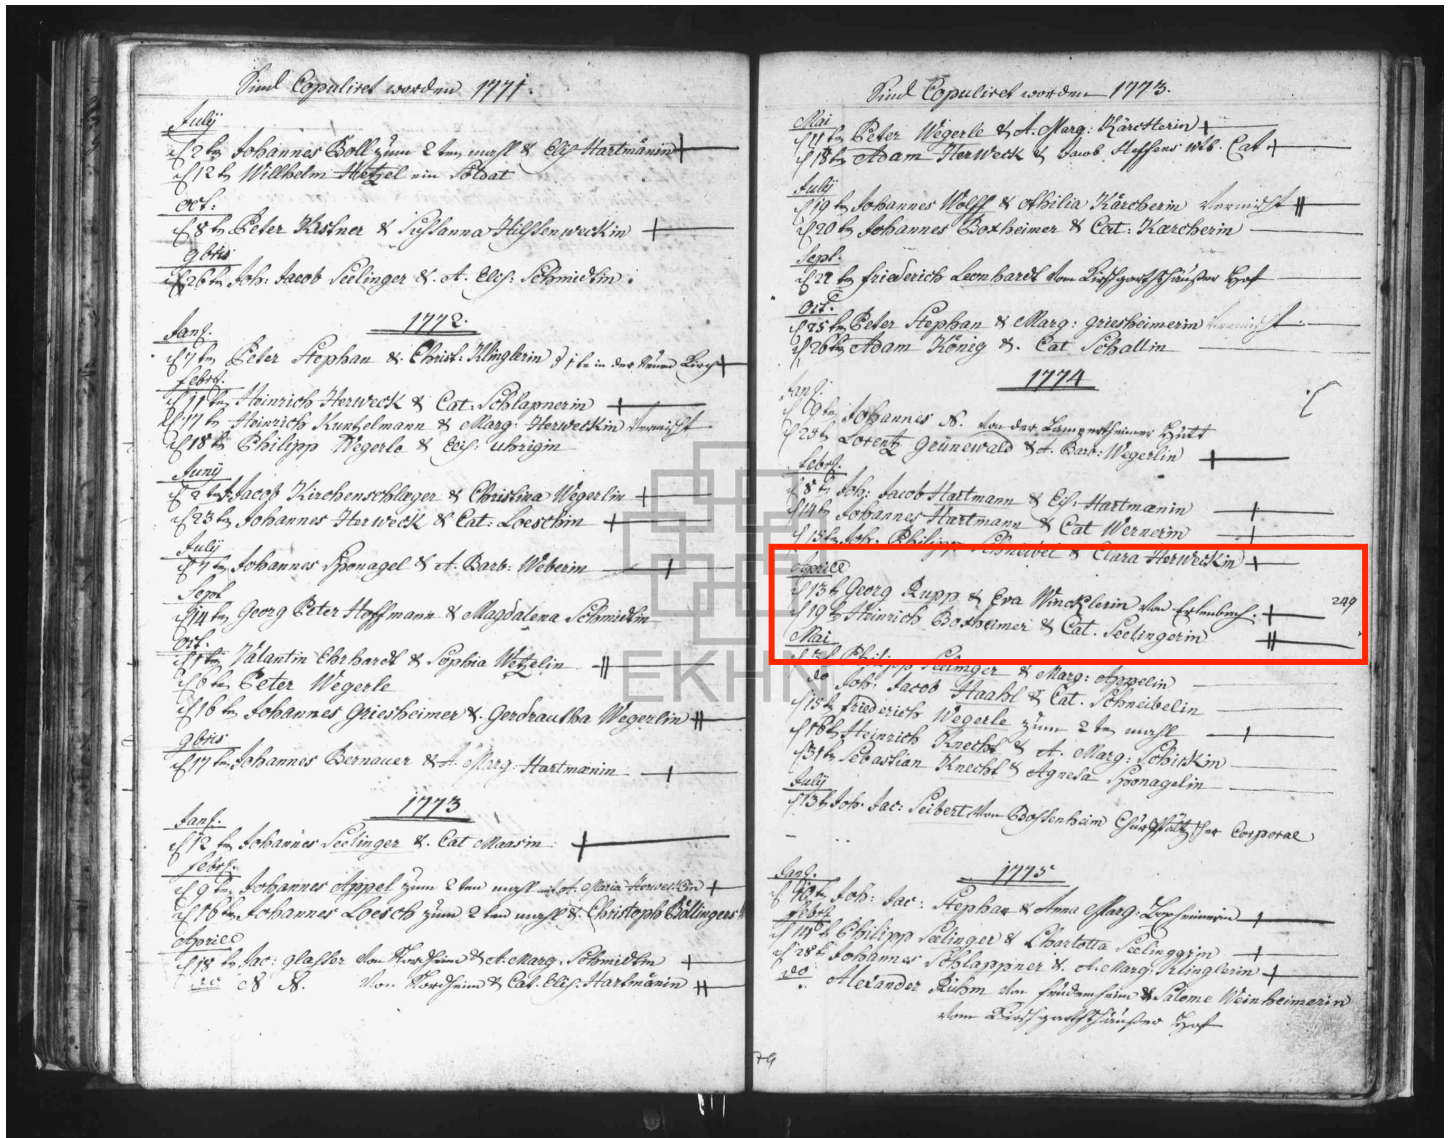 Sind Copuliret worden 1771.
July
d 2ten Johannes Boll zum 2ten mahl & Elis Hartmänin
d 12ten Wilhelm Hetzel ein Soldat
Oct.
d 8ten Peter Kistner & Sussanna
9bris
d 26ten Joh: Jacob Seelinger & A. Elis: Schmidtin.
1772.
Jan.
d 7ten Peter Stephan & Christ. Klinglerin in der Kirch
Febr.
d 11ten Heinrich Herweck & Cat. Schlapnerin
d 17ten Heinrich Kuntzelmann & Marg: Herweckin
d 18ten Philipp Wegerle & Elis: Uhrigin
Juny
d 2ten Jacob Kirchenschlager & Christina Wegerlin
d 23ten Johannes Herweck & Cat. Loeschin
July
d 7ten Johannes Sponagel & A. Barb: Weberin
Sept
d 14ten Georg Peter Hoffmann & Magdalena Schmidtin
Oct.
d 1ten Valantin Ehrhardt & Sophia Wetzelin
d 6ten Peter Wegerle
d 16ten Johannes Griesheimer & Gerdrautha Wegerlin
9bris
d 17ten Johannes Bernauer & A. Marg: Hartmänin
1773
Jan.
d 12ten Johannes Seelinger & Cat Maasin
Febr.
d 9ten Johannes Appel zum 2ten mahl A. Maria Herweckin
d 16ten Johannes Loesch zum 2ten mahl & Christoph Böllingers
Aprill
d 18ten Jac: Glasser von Nordheim & A. Marg. Schmidtin
do N N. von Nordheim & Cat. Elis: Hartmänin
Sind Copuliret worden 1773.
Mai
d 11ten Peter Wegerle & A. Marg: Kärcherin
d 18ten Adam Herweck & Jacob Steffens wtb. Cat.
July
d 19ten Johannes Wolff & Othilia Kärcherin
d 20ten Johannes Boxheimer & Cat: Karcherin
Sept.
d 22ten Friederich Leonhardt vom Kirschgartshäußer Hof
Oct.
d 25ten Peter Stephan & Marg: Griesheimerin
d 26ten Adam König & Cat Schallin
1774
Jan.
d 9ten Johannes N. von der Lampertheimer Hütt
d 23ten Lorentz Grünewald & A. Barb: Wegerlin
Febr.
d 8ten Joh: Jacob Hartmann & Elis: Hartmänin
d 14ten Johannes Hartmann & Cat Wernerin
d 15ten Joh. Philipp Schneibel & Clara Herweckin
Aprill
d 13ten Georg Rupp & Eva Wincklerin von Erlenbach. 249
d 19ten Heinrich Boxheimer & Cat. Seelingerin
Mai
Philipp Selinger & Marg: Appelin
do Joh. Jacob Haahl & Cat. Schneibelin
d 15ten Friederich Wegerle zum 2ten mahl
d 16ten Heinrich Knecht & A. Marg: Schirkin
d 31ten Sebastian Knecht & Agnesa Sponagelin
July
d 13ten Joh. Jac: Seibert von Bossenheim Churpfältzischer Corporal
1775
Jan.
d 10ten Joh: Jac: Stephan & Anna Marg:
Febr
d 14ten Philipp Selinger & Charlotta Seelingerin
d 28ten Johannes Schlappner & A. Marg: Klinglerin
do Alexander Rühm von Freudenheim & Salome Weinheimerin
vom Kirschgartshäußer Hof
EKHN